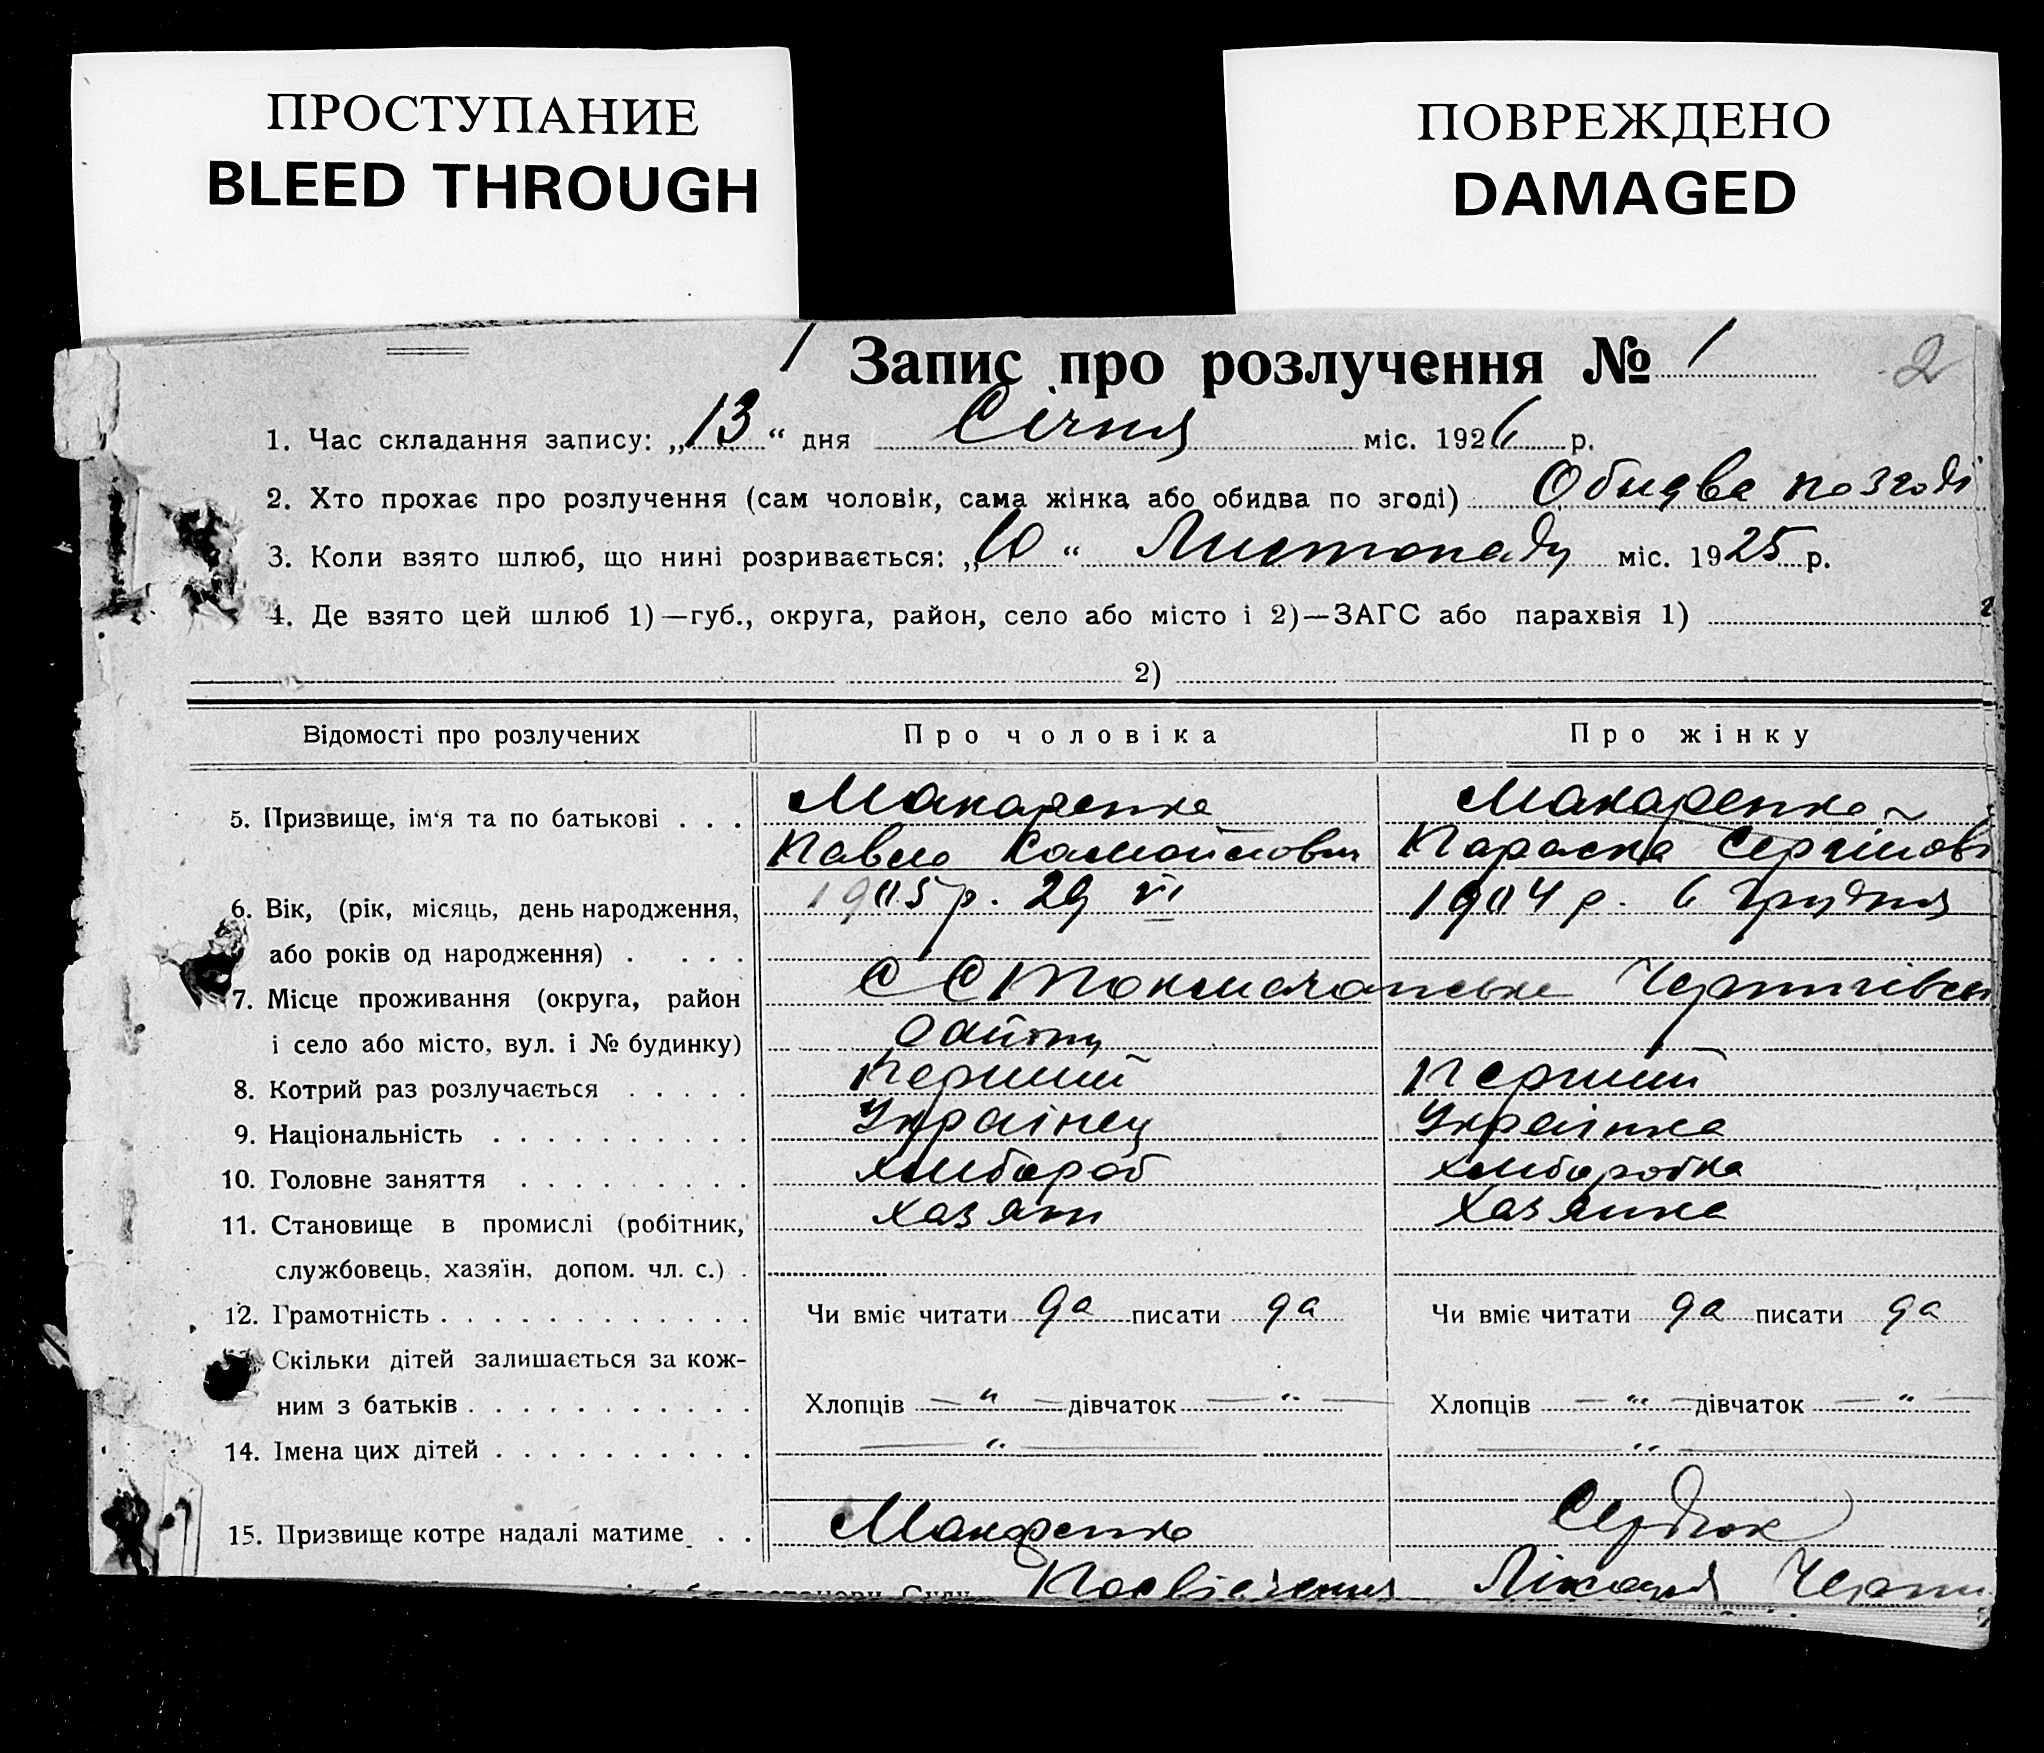 ПРОСТУПАНИЕ
BLEED THROUGH
ПОВРЕЖДЕНО
DAMAGED
1 Запис про розлучення № 1 2
1. Час складання запису: „13“ дня Січня міс. 1926 р.
2. Хто прохає про розлучення (сам чоловік, сама жінка або обидва по згоді) Обидва по згоді
3. Коли взято шлюб, що нині розривається: „10“ Листопаду міс. 1925 р.
4. Де взято цей шлюб 1)—губ., округа, район, село або місто і 2)—ЗАГС або парахвія 1)
2)
Відомості про розлучених Про чоловіка Про жінку
5. Призвище, ім‘я та по батькові . . . Макаренко Макаренко
Павло Параска Сергіїові
6. Вік, (рік, місяць, день народження, 1905 р. 29 VI 1904 р. 6 Грудня
або років од народження) . . . .
7. Місце проживання (округа, район С Чернигівськ
і село або місто, вул. і № будинку) району
8. Котрий раз розлучається . . . . . Перший Перший
9. Національність . . . . . . . . . . Українец Українка
10. Головне заняття . . . . . . . . . хлібороб хліборобка
11. Становище в промислі (робітник, хазяін хазяйка
службовець, хазяїн, допом. чл. с.) .
12. Грамотність . . . . . . . . . . . . Чи вміє читати да писати да Чи вміє читати да писати да
Скільки дітей залишається за кож-
ним з батьків . . . . . . . . . . . Хлопців — „ — дівчаток — „ — Хлопців — „ — дівчаток — „ —
14. Імена цих дітей . . . . . . . . . . — „ — — „ —
15. Призвище котре надалі матиме . . Макаренко Сердюк
постанови Суду Посвідчення